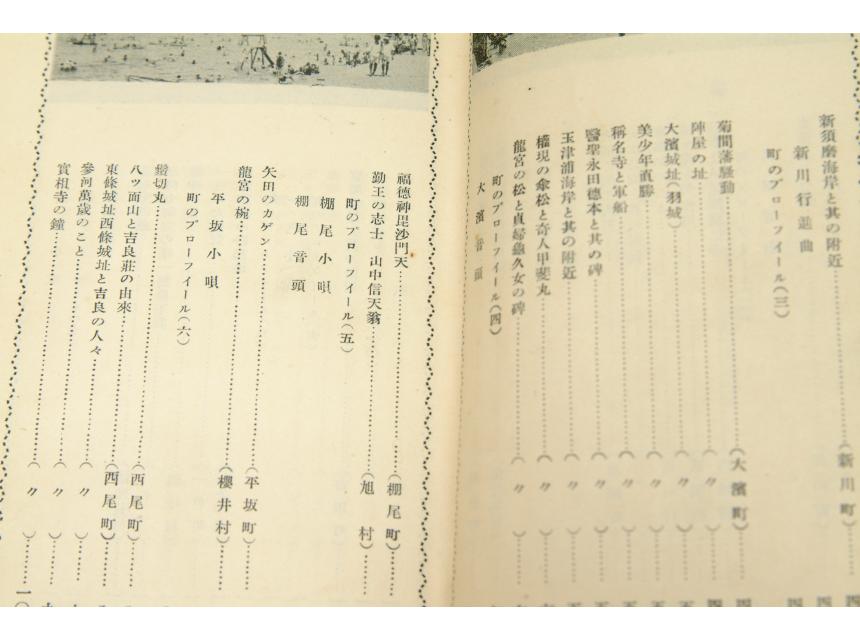 新須磨海岸と其の附近……(新川町)……四
新川行進曲
町のプローフイール(三)
菊間藩騷動……(大濱町)……四
陣屋の址……(〃)……四
大濱城址(羽城)……(〃)……五
美少年直勝……(〃)……五
稱名寺と軍船……(〃)……五
醫聖永田德本と其の碑……(〃)……五
玉津浦海岸と其の附近……(〃)……五
權現の傘松と奇人甲斐丸……(〃)……六
龍宮の松と貞婦龜久女の碑……(〃)……六
町のプローフイール(四)
大濱音頭
福德神毘沙門天……(棚尾町)……
勤王の志士 山中信天翁……(旭村)……
町のプローフイール(五)
棚尾小唄
棚尾音頭
矢田のカゲン……(平坂町)……
龍宮の椀……(櫻井村)……
平坂小唄
町のプローフイール(六)
鎧切丸……(西尾町)……
八ツ面山と吉良莊の由來……(西尾町)……
東條城址西條城址と吉良の人々……(〃)……
參河萬歲のこと……(〃)……九
實相寺の鐘……(〃)……一〇